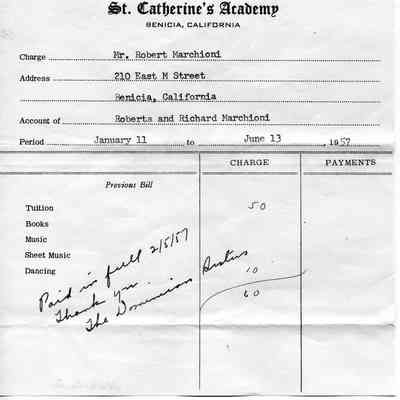 St. Catherine's Academy
BENICIA, CALIFORNIA
Charge Mr. Robert Marchioni
Address 210 East M Street
Benicia, California
Account of Roberts and Richard Marchioni
Period January 11 to June 13, 1957
CHARGE PAYMENTS
Previous Bill
Tuition 50
Books
Music
Sheet Music
Dancing 10
60
Paid in full 2/5/57
Thank you.
The Dominican Sisters